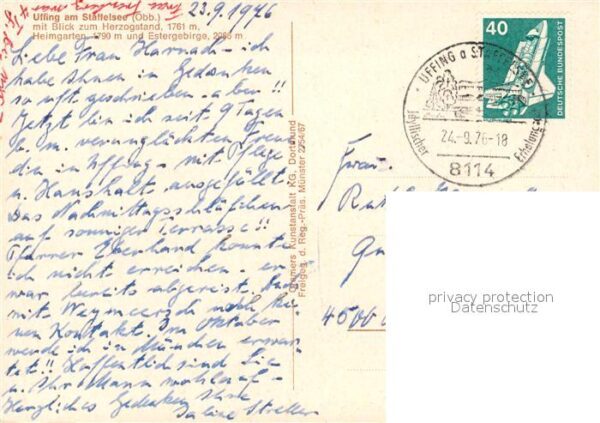 23.9.1976
Uffing am Staffelsee (Obb.)
mit Blick zum Herzogstand, 1761 m,
Heimgarten, 1790 m und Estergebirge, 2086 m
Liebe Frau Harnach - ich
habe Ihnen in Gedanken
so oft geschrieben - aber!!
Jetzt bin ich seit 9 Tagen
b. m. verunglückten Freun
din in Uffing - mit Pflege
u. Haushalt ausgefüllt
Das Nachmittagsschläfchen
auf sonniger Terrasse!!
Pfarrer Eberhand konnte
ich nicht erreichen - er
war bereits abgereist. Auch
mit noch kei-
nen Kontakt. Im Oktober
werde ich in München erwar
tet!! Hoffentlich sind Sie
u. Ihr Mann wohlauf -
Herzliches Gedenken Ihre
Streller
Cramers Kunstanstalt KG, Dortmund
Freigeg. d. Reg.-Präs. Münster 2254/67
40
DEUTSCHE BUNDESPOST
UFFING a STAFFELSEE
Idyllischer
Erholungsort
24.-9.76-18
8114
Frau
4500
privacy protection
Datenschutz